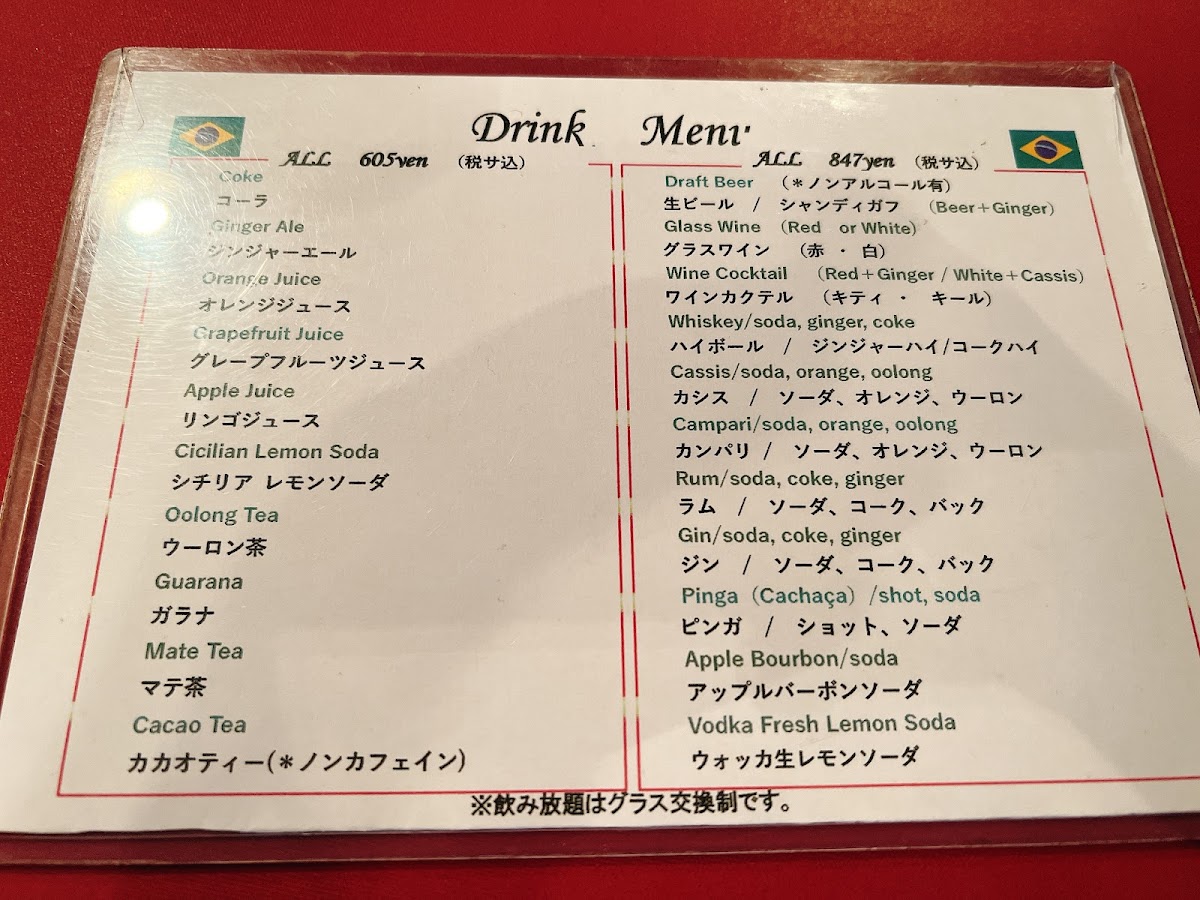 Drink Menu
ALL 605yen （税サ込）
Coke
コーラ
Ginger Ale
ジンジャーエール
Orange Juice
オレンジジュース
Grapefruit Juice
グレープフルーツジュース
Apple Juice
リンゴジュース
Cicilian Lemon Soda
シチリア レモンソーダ
Oolong Tea
ウーロン茶
Guarana
ガラナ
Mate Tea
マテ茶
Cacao Tea
カカオティー(＊ノンカフェイン)
ALL 847yen （税サ込）
Draft Beer （＊ノンアルコール有）
生ビール / シャンディガフ （Beer＋Ginger）
Glass Wine （Red or White）
グラスワイン （赤 ・ 白）
Wine Cocktail （Red＋Ginger / White＋Cassis）
ワインカクテル （キティ ・ キール）
Whiskey/soda, ginger, coke
ハイボール / ジンジャーハイ/コークハイ
Cassis/soda, orange, oolong
カシス / ソーダ、オレンジ、ウーロン
Campari/soda, orange, oolong
カンパリ / ソーダ、オレンジ、ウーロン
Rum/soda, coke, ginger
ラム / ソーダ、コーク、バック
Gin/soda, coke, ginger
ジン / ソーダ、コーク、バック
Pinga（Cachaça）/shot, soda
ピンガ / ショット、ソーダ
Apple Bourbon/soda
アップルバーボンソーダ
Vodka Fresh Lemon Soda
ウォッカ生レモンソーダ
※飲み放題はグラス交換制です。